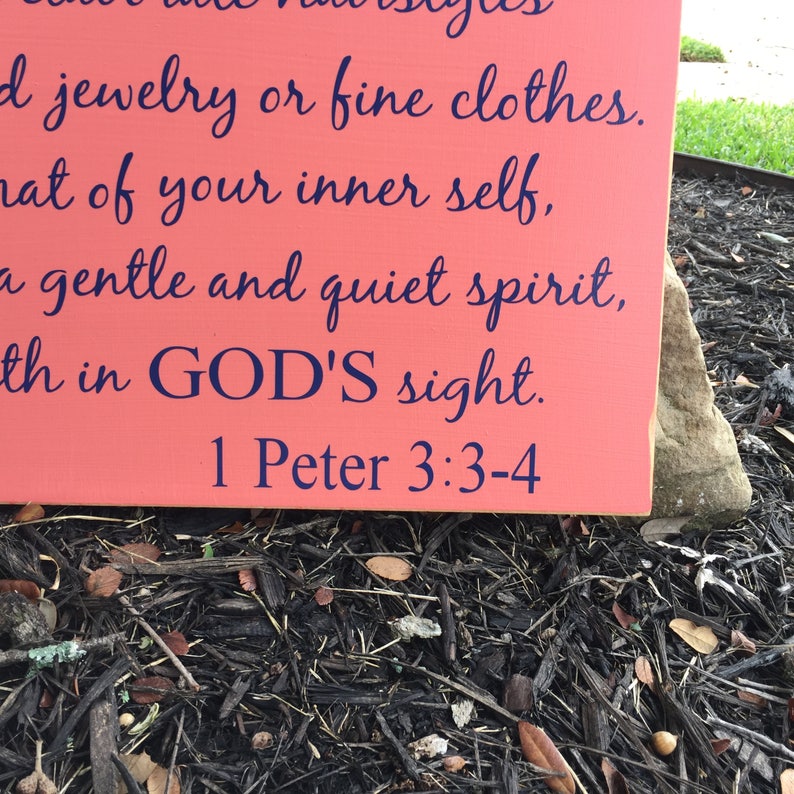 hairstyles
jewelry or fine clothes.
of your inner self,
a gentle and quiet spirit,
in GOD'S sight.
1 Peter 3:3-4